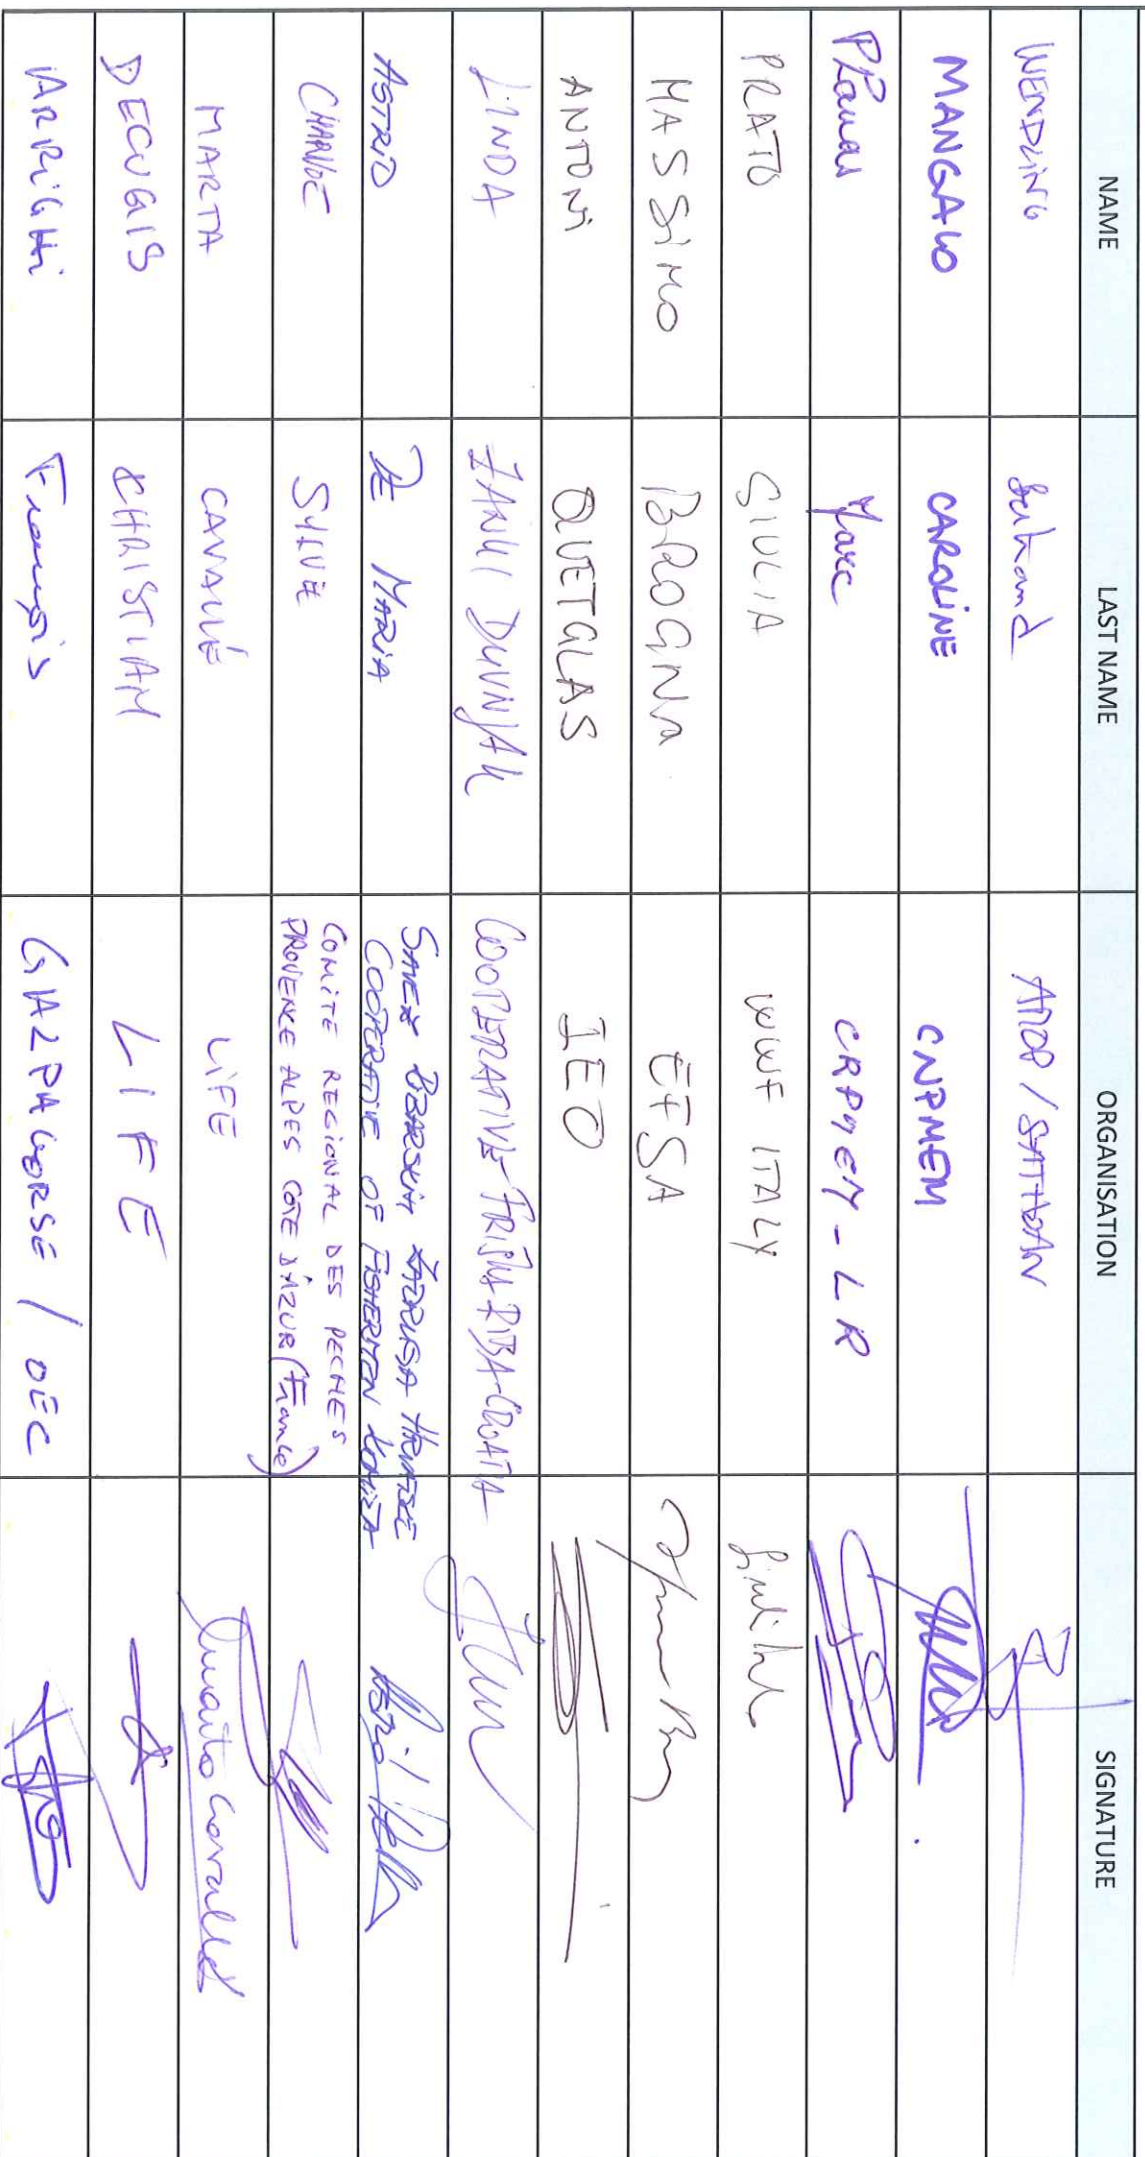 NAME LAST NAME ORGANISATION SIGNATURE
WENDLING Bertrand AMOP / SATHOAN
MANGALO CAROLINE CNPMEM
PLanas Marc CRPMEM-LR
PRATO GIULIA WWF ITALY
MASSIMO BROGNA EFSA
ANTONI QUETGLAS IEO
LINDA ŽANKI DUVNJAK COOPERATIVE FRISKA RIBA-CROATIA
ASTRID DE MARIA SAVEZ RIBARSKIH ZADRUGA HRVATSKE
COOPERATIVE OF FISHERMEN KOMIZA
SYLVE COMITE REGIONAL DES PECHES
PROVENCE ALPES COTE D'AZUR (France)
MARTA CAVALLÉ LIFE
DECUGIS CHRISTIAN LIFE
ARRIGHI François GALPA CORSE / OEC